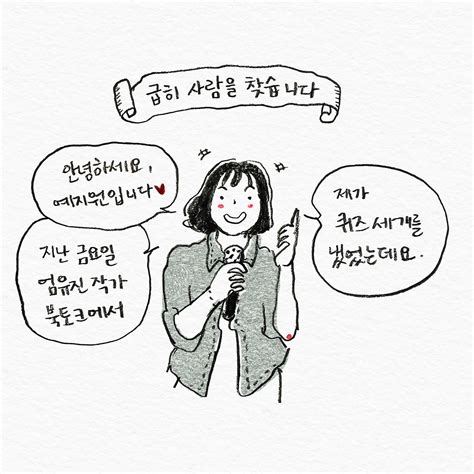 급히 사람을 찾습니다
안녕하세요,
예지원입니다
지난 금요일
엄유진 작가
북토크에서
제가
퀴즈 세개를
냈었는데요.